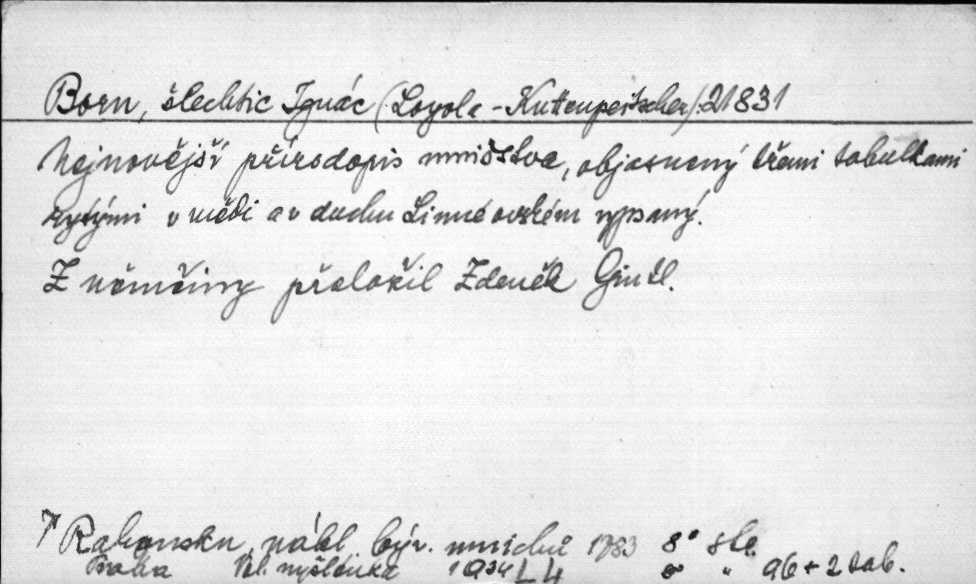 Born, šlechtic Ignác (Loyola-Kuttenpeitscher): 21831
Nejnovější přírodopis mnišstva, objasnený třemi tabulkami
rytými v mědi a v duchu Linnéovském vypsaný.
Z němčiny přeložil Zdeněk Gintl.
V Rakousku, nákl. býv. mnichů 1783 8° str.
Praha Vol. myšlenka 1934 8° " 96 + 2 tab.